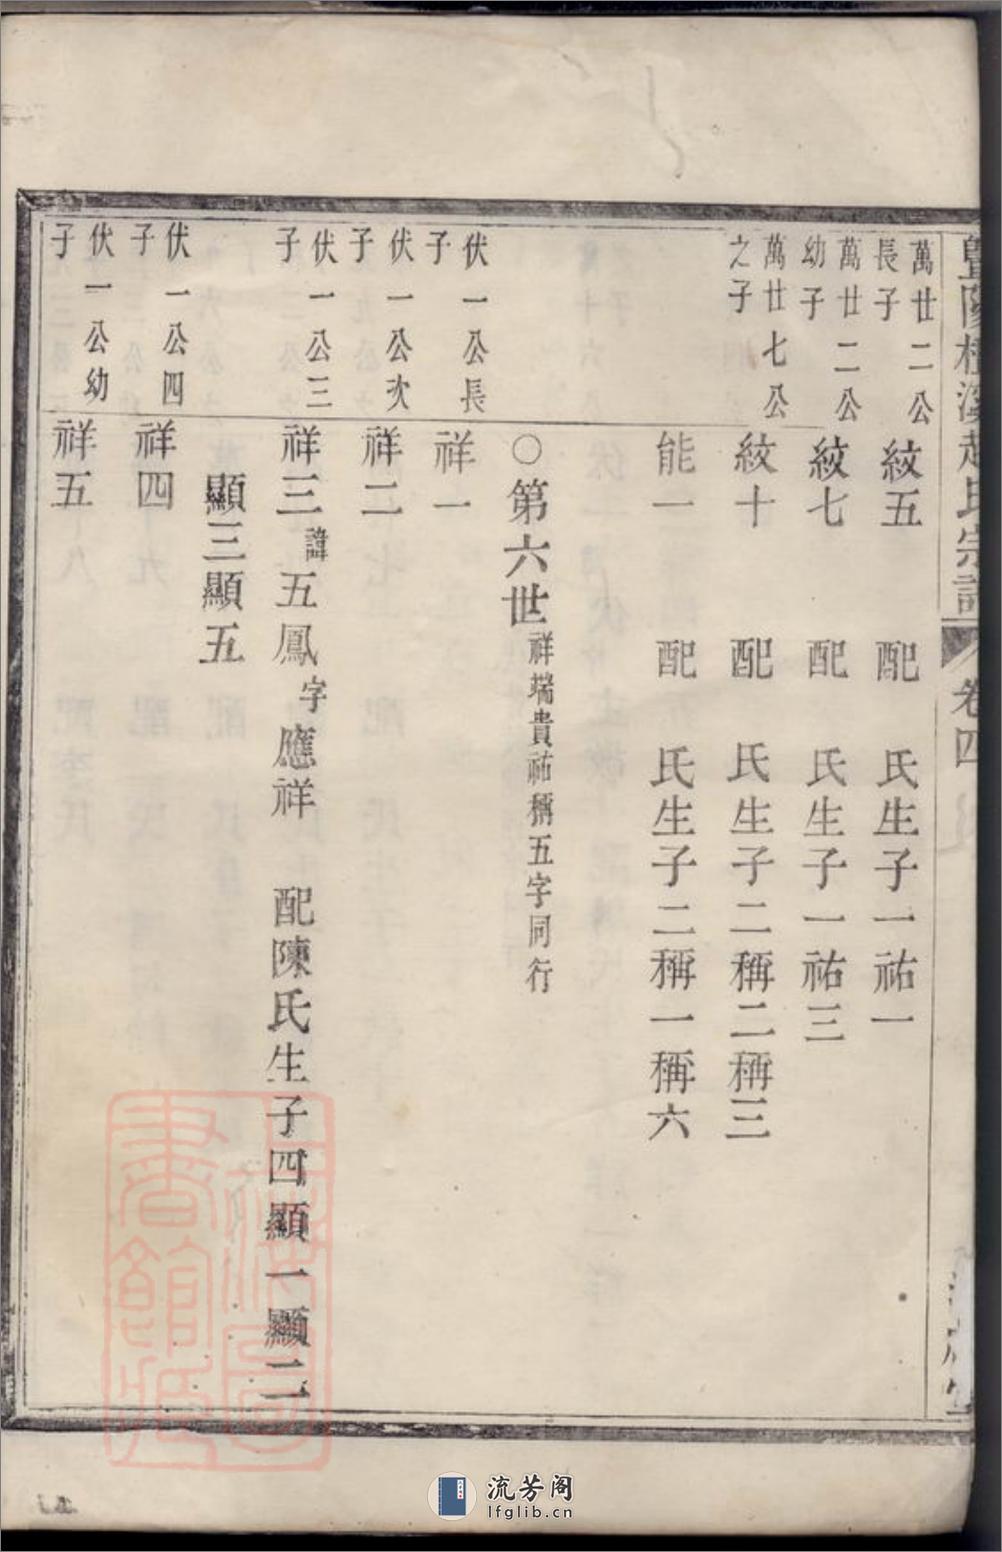 暨陽桂溪趙氏宗譜 卷四
萬廿二公長子 紋五 配 氏生子一祐一
萬廿二公幼子 紋七 配 氏生子一祐三
萬廿七公之子 紋十 配 氏生子二稱二稱三
能一 配 氏生子二稱一稱六
○第六世祥瑞貴祐稱五字同行
伏一公長子 祥一
伏一公次子 祥二
伏一公三子 祥三諱五鳳字應祥 配陳氏生子四顯一顯二
顯三顯五
伏一公四子 祥四
伏一公幼子 祥五
流芳阁
lfglib.cn